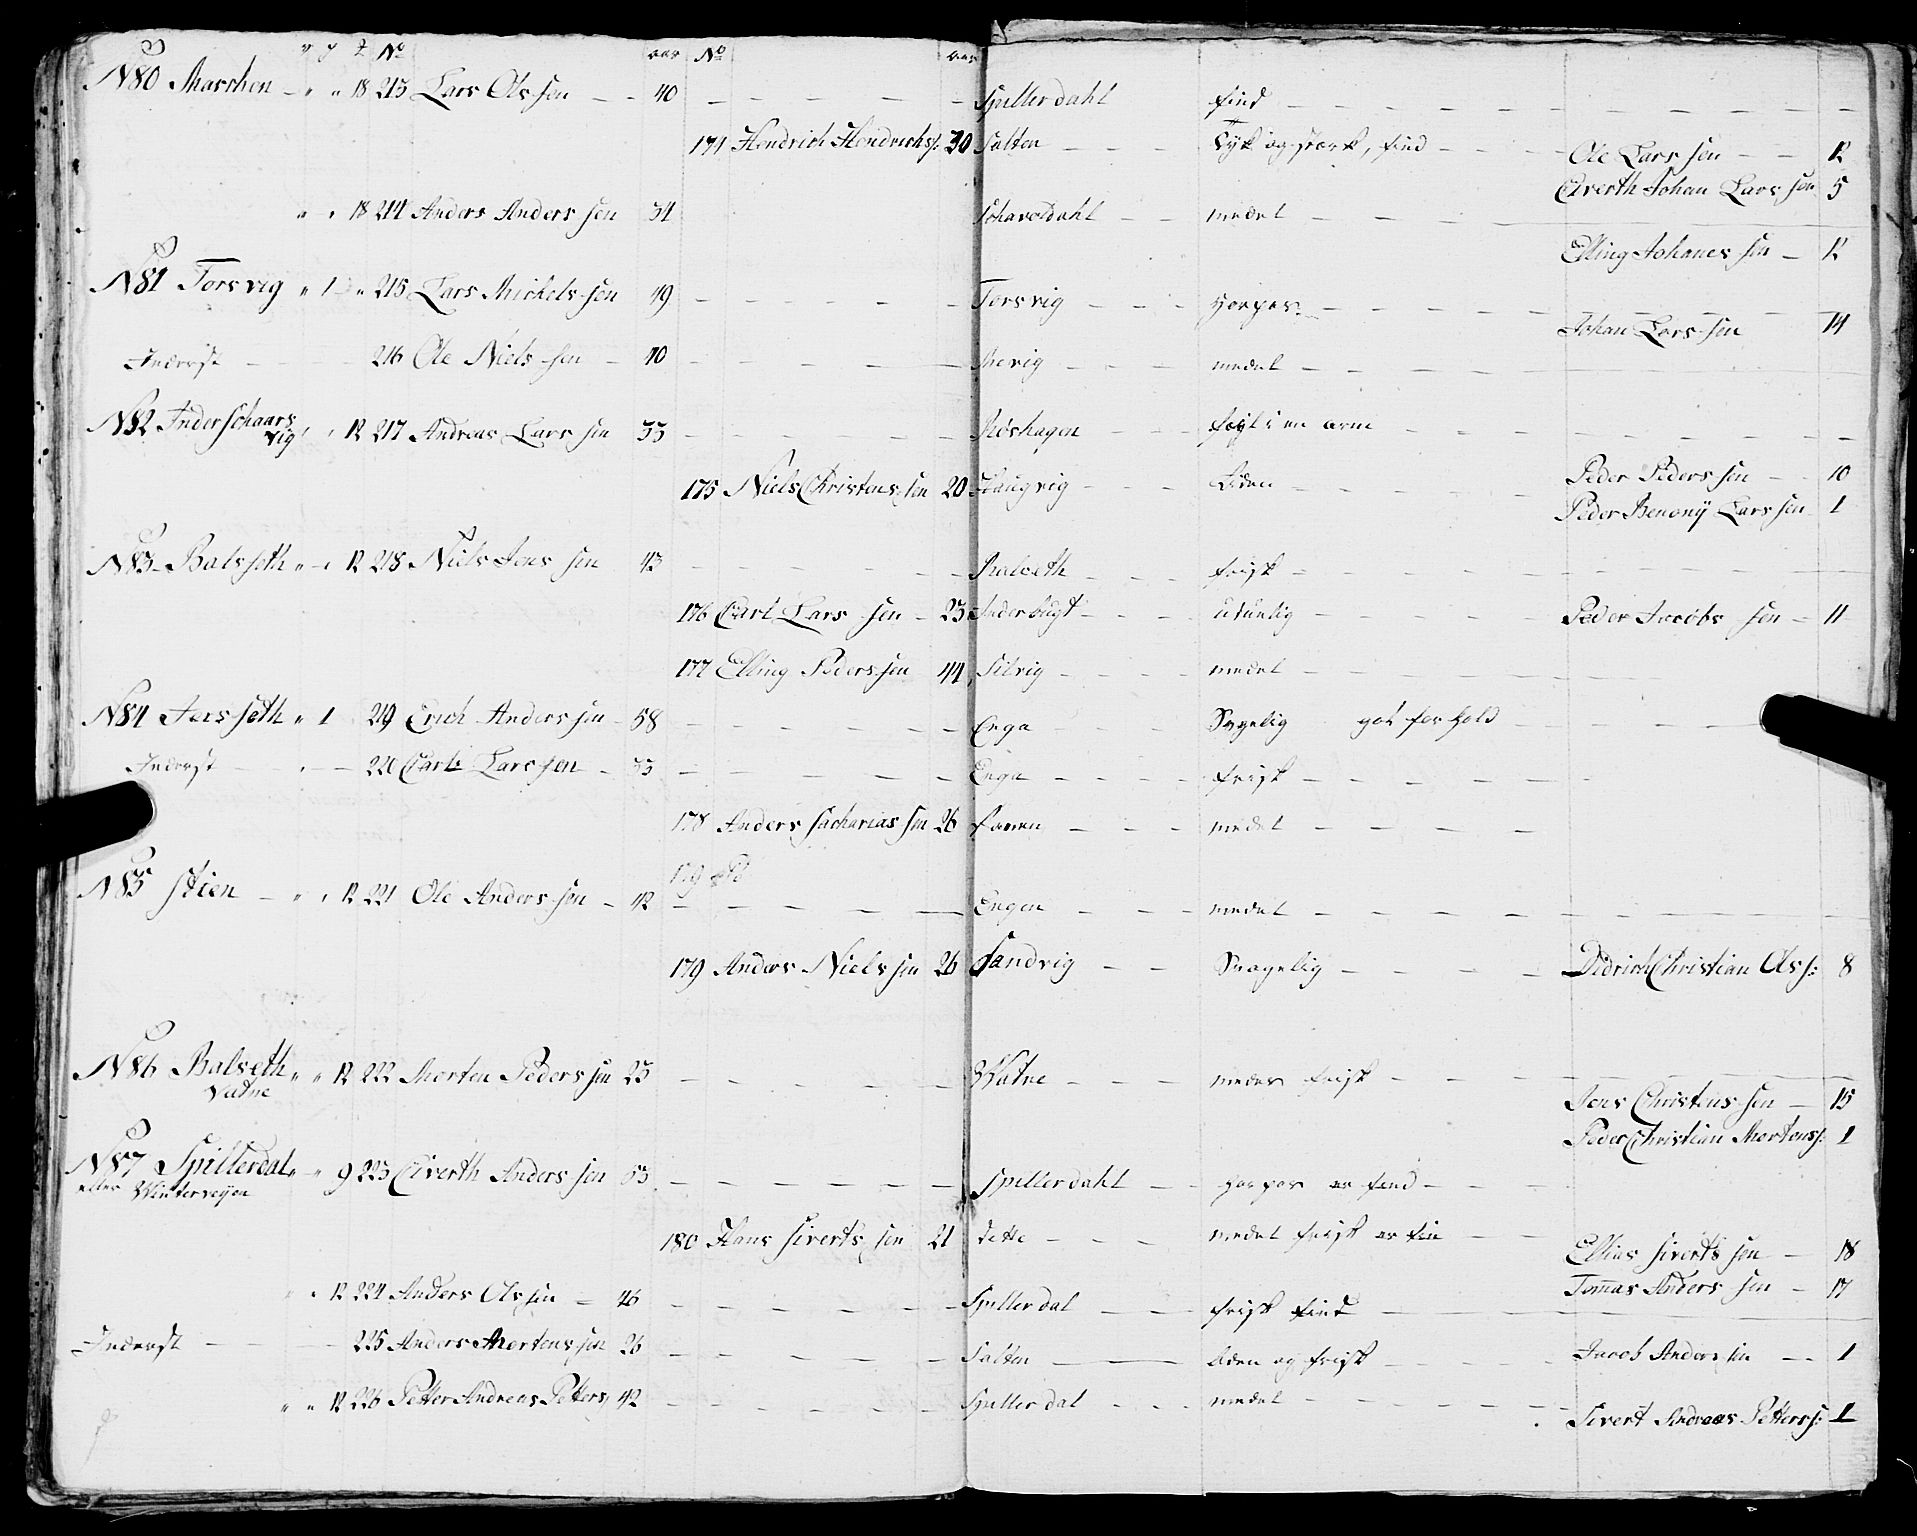 v y Z No aar No aar
N80 Marchen - " " 18 213 Lars Ols sen 40 Spillerdahl find
171 Hendrich Hendrichs s: 30 Salten Tyk og stærk, find Ole Lars sen 12
Eiverth Johan Lars sen 5
" " 18 214 Anders Anders sen 34 medel
Elling Johanes sen 12
N81 Torsvig " 1 " 215 Lars Mickels sen 49 Torsvig
Johan Lars sen 14
Inderst 216 Ole Niels sen 40 medel
N82 Inder Schaars vig " " 12 217 Andreas Lars sen 33 i en arm
175 Niels Christens sen 20 Haugvig Liden Peder Peders sen 10
Peder Benonÿ Lars sen 1
N83 Balsseth " " 12 218 Niels Jens sen 43 Balseth frisk
176 Carl Lars sen 23 Inderbugt Peder Jacobs sen 11
177 Elling Peders sen 44 Silvig medel
N84 Jersseth " 1 219 Erich Anders sen 58 Enga Svagelig
Inderst 220 Carl Lars sen 33 Enga frisk
178 Anders Sacharias sen 26 medel
179 Pd
N85 Stien " " 12 221 Ole Anders sen 42 Engen medel
179 Anders Niels sen 26 Sandvig Svagelig Didrich Christian Ols s: 8
N86 Balseth Vatne " " 12 222 Morten Peders sen 23 Watne frisk
Jens Christens sen 15
Peder Christian Mortens s: 1
N87 Spillerdal " " 9 223 Eiverth Anders sen 53 Spillerdahl er find
eller Wintervejen
180 Hans Siverts sen 21 dette medel frisk er fin Ellias Siverts sen 18
Tomas Anders sen 17
" " 12 224 Anders Ols sen 46 Spillerdal frisk find
Inderst 225 Anders Mortens sen 26 Salten Liden og frisk Jacob Anders sen 1
" " 12 226 Petter Andreas Petters 42 Spillerdal medel
Sivert Andreas Petters s: 1